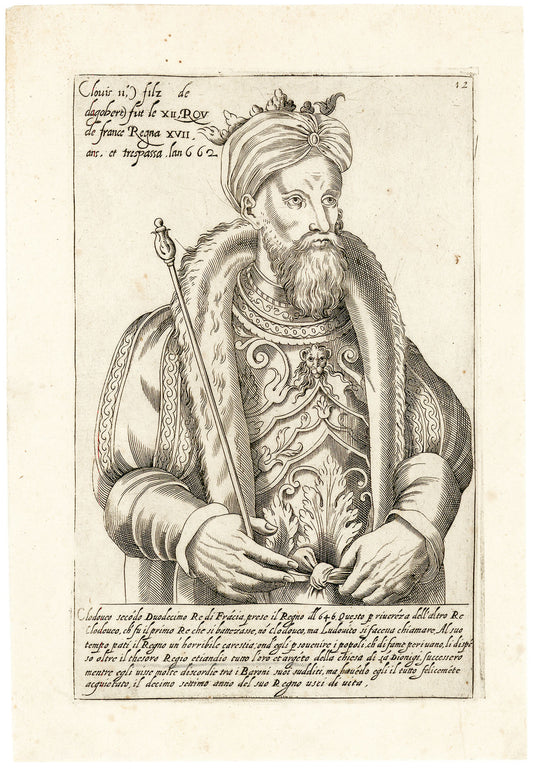 Clouis 11.) filz de
dagobert) fut le XII, ROY
de france Regna XVII
ans, et trespassa .lan 662
12
Clodoueo secōdo Duodecimo Re di Frācia, prese il Regno dl' 646. Questo p riuerēza dell'altro Re
Clodoueo, ch fù il primo Re che si batezasse, nō clodoueo, ma Ludouico si faceua chiamare. Al suo
tempo pati il Regno un horribile carestia, ond' egli p souenire i popoli, ch di fame periuano, li dispē
so oltre il thesoro Regio etiandio tutto l'oro et argēto della chiesa di sā Dionigi, successero
mentre egli uisse molte discordie tra i Baroni suoi sudditi, ma hauēdo egli il tutto felicemēte
acquietato, il decimo settimo anno del suo Regno usci di uita,